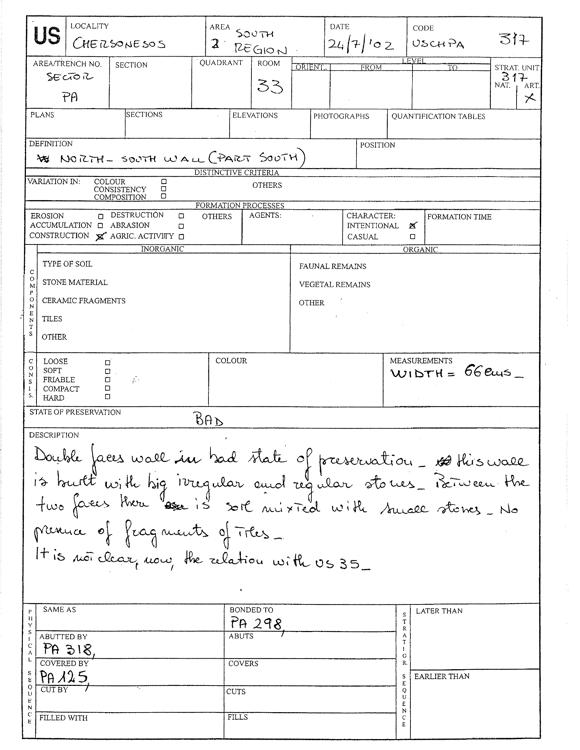 US
LOCALITY
CHERSONESOS
AREA SOUTH
2 REGION
DATE
24/7/'02
CODE
USCHPA 317
AREA/TRENCH NO.
SECTOR
PA
SECTION
QUADRANT
ROOM
33
LEVEL
ORIENT. FROM TO
STRAT. UNIT
317
NAT. ART.
X
PLANS
SECTIONS
ELEVATIONS
PHOTOGRAPHS
QUANTIFICATION TABLES
DEFINITION
NORTH - SOUTH WALL (PART SOUTH)
POSITION
DISTINCTIVE CRITERIA
VARIATION IN: COLOUR
CONSISTENCY
COMPOSITION
OTHERS
FORMATION PROCESSES
EROSION DESTRUCTION OTHERS
ACCUMULATION ABRASION
CONSTRUCTION X AGRIC. ACTIVITY
AGENTS:
CHARACTER:
INTENTIONAL X
CASUAL
FORMATION TIME
COMPONENTS
INORGANIC
TYPE OF SOIL
STONE MATERIAL
CERAMIC FRAGMENTS
TILES
OTHER
ORGANIC
FAUNAL REMAINS
VEGETAL REMAINS
OTHER
CONSIS.
LOOSE
SOFT
FRIABLE
COMPACT
HARD
COLOUR
MEASUREMENTS
WIDTH = 66 cms_
STATE OF PRESERVATION
BAD
DESCRIPTION
Double faces wall in bad state of preservation_ this wall
is built with big irregular and regular stones_ Between the
two faces there is soil mixted with small stones_ No
presence of fragments of Tiles_
It is not clear, now, the relation with US 35_
PHYSICAL SEQUENCE
SAME AS
BONDED TO
PA 298,
ABUTTED BY
PA 318,
ABUTS
COVERED BY
PA 125,
COVERS
CUT BY
CUTS
FILLED WITH
FILLS
STRATIGR. SEQUENCE
LATER THAN
EARLIER THAN